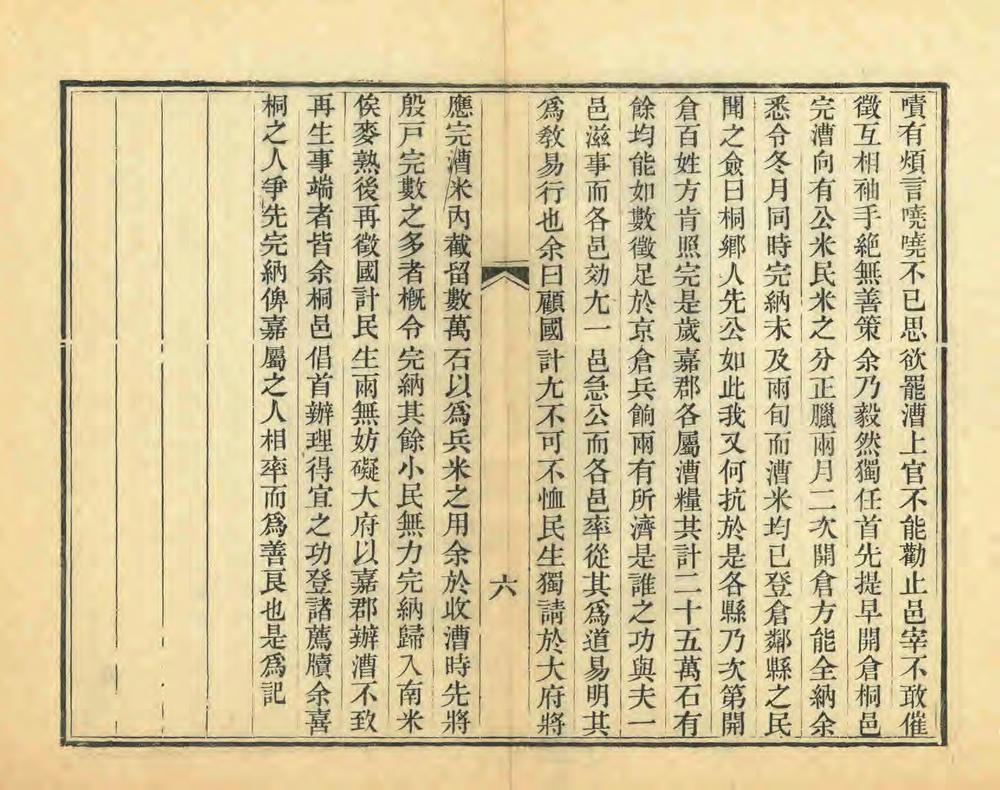 嘖有煩言嘵嘵不已思欲罷漕上官不能勸止邑宰不敢催
徵互相袖手絕無善策余乃毅然獨任首先提早開倉桐邑
完漕向有公米民米之分正臘兩月二次開倉方能全納余
悉令冬月同時完納未及兩旬而漕米均已登倉鄰縣之民
聞之僉曰桐鄉人先公如此我又何抗於是各縣乃次第開
倉百姓方肯照完是歲嘉郡各屬漕糧共計二十五萬石有
餘均能如數徵足於京倉兵餉兩有所濟是誰之功與夫一
邑滋事而各邑効尤一邑急公而各邑率從其為道易明其
為教易行也余曰顧國計尤不可不恤民生獨請於大府將
六
應完漕米內截留數萬石以為兵米之用余於收漕時先將
殷戸完數之多者槪令完納其餘小民無力完納歸入南米
俟麥熟後再徵國計民生兩無妨礙大府以嘉郡辦漕不致
再生事端者皆余桐邑倡首辦理得宜之功登諸薦牘余喜
桐之人爭先完納俾嘉屬之人相率而為善良也是為記